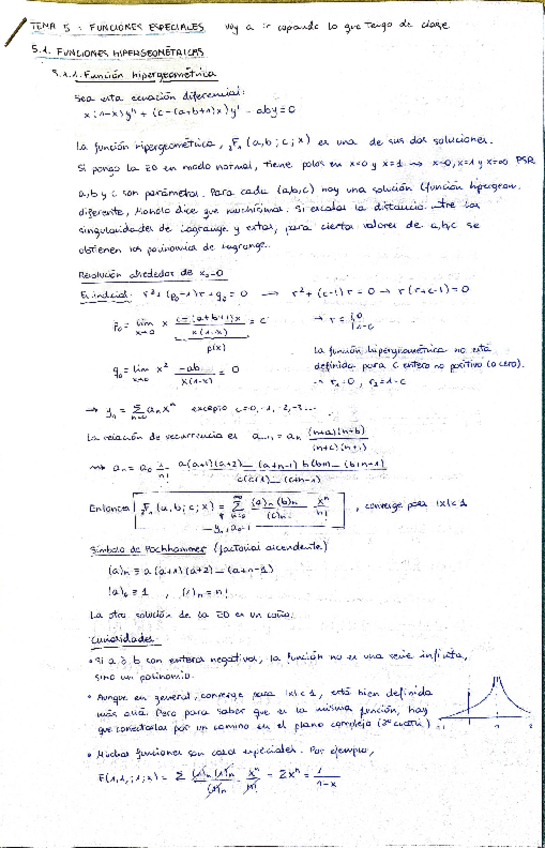 TEMA 5 : FUNCIONES ESPECIALES voy a ir copiando lo que tengo de clase
5.1. FUNCIONES HIPERGEOMÉTRICAS
5.1.1. Función hipergeométrica
Sea esta ecuación diferencial:
x(1-x)y'' + (c-(a+b+1)x)y' - aby = 0
La función hipergeométrica, ₂F₁(a,b;c;x) es una de sus dos soluciones.
Si pongo la ED en modo normal, tiene polos en x=0 y x=1 → x=0, x=1 y x=∞ PSR
a, b y c son parámetros. Para cada (a,b,c) hay una solución (función hipergeom.
diferente, Manolo dice que muchísimas. Si escalas la distancia entre las
singularidades de Lagrange y estas, para ciertos valores de a,b,c se
obtienen los polinomios de Lagrange.
Resolución alrededor de x₀=0
Ec. indicial: r² + (p₀-1)r + q₀ = 0 → r² + (c-1)r = 0 → r(r+c-1) = 0
p₀ = lim x→0 x (c-(a+b+1)x)/(x(1-x)) = c → r = 0, 1-c
p(x)
q₀ = lim x→0 x² (-ab)/(x(1-x)) = 0
La función hipergeométrica no está
definida para c entero no positivo (o cero).
→ r₁=0, r₂=1-c
→ y₁ = Σ aₙxⁿ excepto c=0,-1,-2,-3...
La relación de recurrencia es aₙ₊₁ = aₙ (n+a)(n+b)/((n+c)(n+1))
⇒ aₙ = a₀ 1/n! a(a+1)(a+2)...(a+n-1) b(b+1)...(b+n-1)/(c(c+1)...(c+n-1))
Entonces ₂F₁(a,b;c;x) = Σ (a)ₙ(b)ₙ/(c)ₙ xⁿ/n! , converge para |x|<1
y₁, a₀=1
Símbolo de Pochhammer (factorial ascendente)
(a)ₙ ≡ a(a+1)(a+2)...(a+n-1)
(a)₀ ≡ 1 , (1)ₙ = n!
La otra solución de la ED es un coñazo.
Curiosidades
• Si a ó b son enteros negativos, la función no es una serie infinita,
sino un polinomio.
• Aunque en general, converge para |x|<1, está bien definida
más allá. Pero para saber que es la misma función, hay
que conectarlas por un camino en el plano complejo (2º cuatri.)
-1 1 2
• Muchas funciones son casos especiales. Por ejemplo,
F(1,1;1;x) = Σ (1)ₙ(1)ₙ/(1)ₙ xⁿ/n! = Σxⁿ = 1/(1-x)